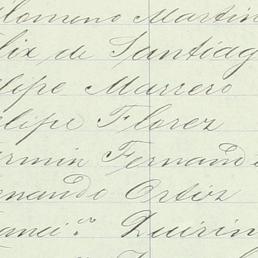 ilomeno Martin
lix de Santiag
elipe Marrero
elipe Florez
ermin Fernand
ernando Ortiz
ranci.co Quirin